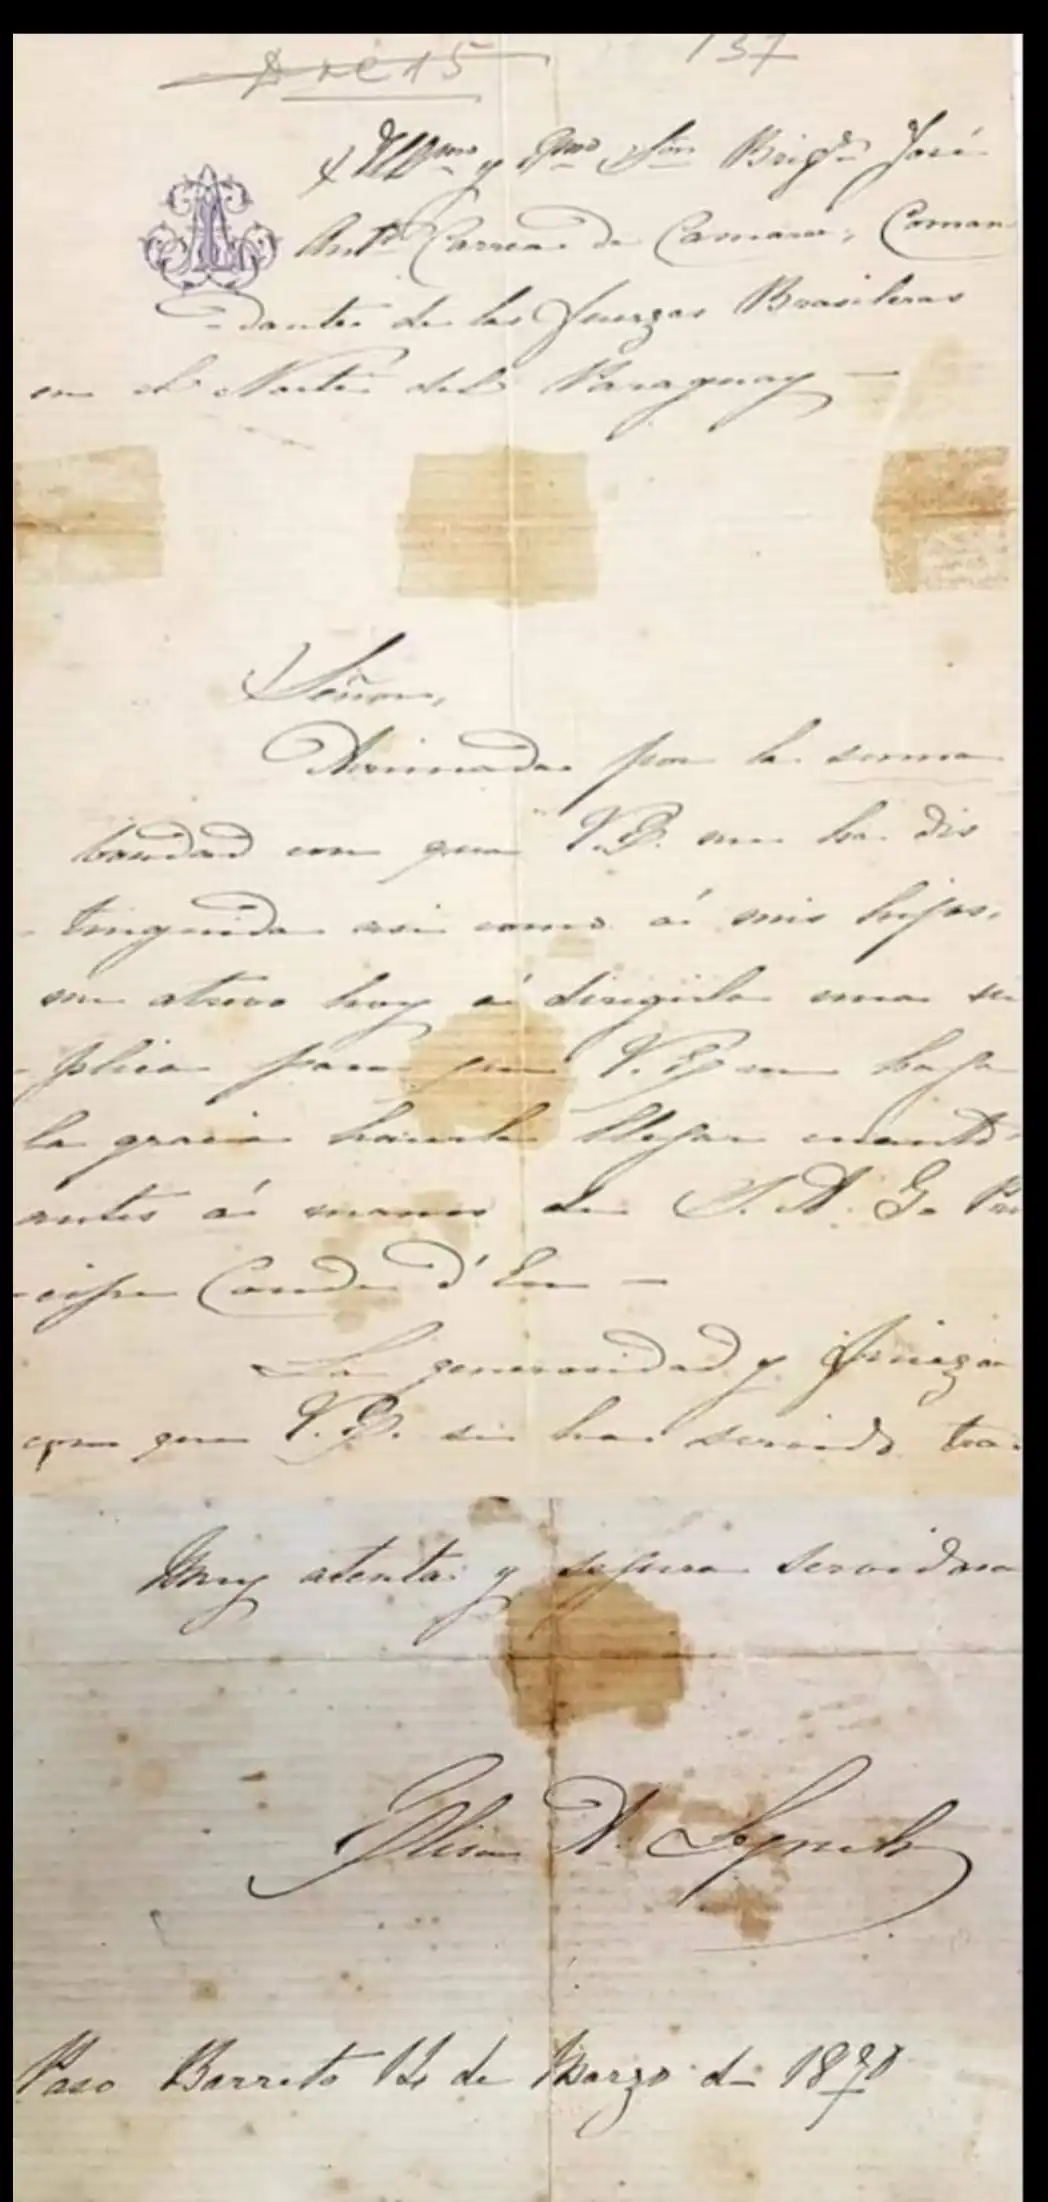 Doc 15
137
Yllmo y Exmo Sñor Brigdr José
Antº Correa da Camara, Coman
-dante de las fuerzas Brasileras
en el Norte del Paraguay —
Señor,
Animada por la suma
bondad con que V.E. me ha dis
-tinguido asi como á mis hijos,
me atrevo hoy á dirigirle una su
-plica para que V.E. me haga
la gracia hacerla llegar cuanto
antes á manos de S. A. El Prin
-cipe Conde d'Eu —
La generosidad y fineza
con que V.E. se ha servido tra-
Muy atenta y segura servidora
Elisa A. Lynch
Paso Barreto 12 de Marzo de 1870